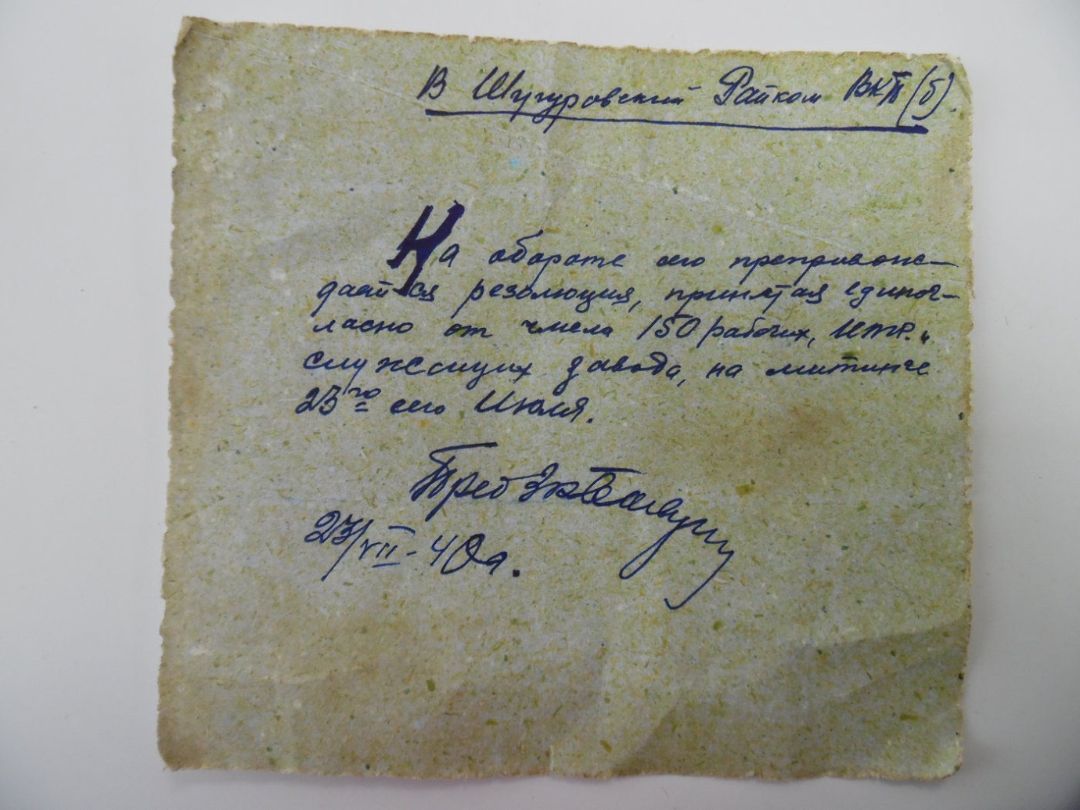 В Шугуровский Райком ВКП(б).
На обороте сего препровож-
дается резолюция, принятая единог-
ласно от числа 150 рабочих, ИТР. и
служащих завода, на митинге
23го сего Июля.
Пред
23/VII-40г.